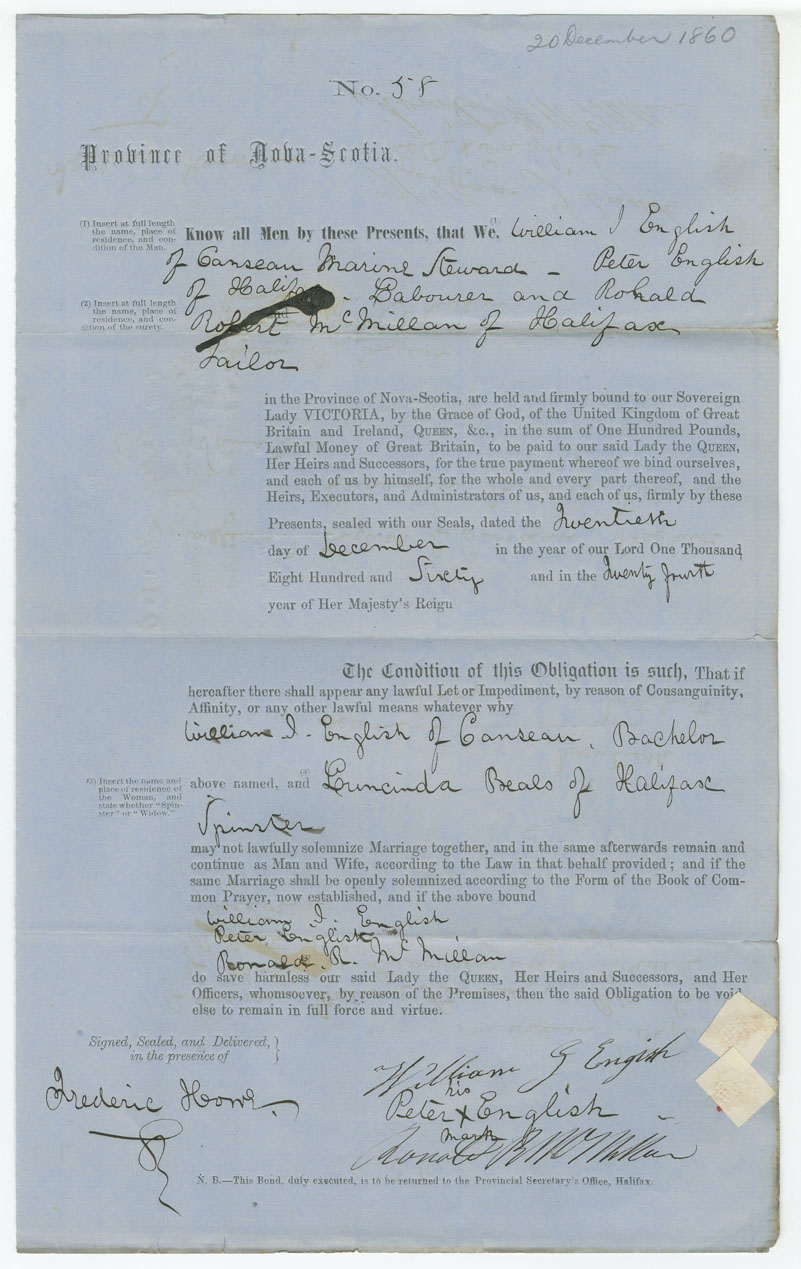 20 December 1860
No. 58
Province of Nova-Scotia.
(1) Insert at full length
the name, place of
residence, and con-
dition of the Man.
Know all Men by these Presents, that We, (1) William I English
of Canseau Marine Steward – Peter English
of Halifax. Labourer and Ronald
(2) Insert at full length
the name, place of
residence, and con-
dition of the surety.
Robert McMillan of Halifax
Tailor
in the Province of Nova-Scotia, are held and firmly bound to our Sovereign
Lady VICTORIA, by the Grace of God, of the United Kingdom of Great
Britain and Ireland, QUEEN, &c., in the sum of One Hundred Pounds,
Lawful Money of Great Britain, to be paid to our said Lady the QUEEN,
Her Heirs and Successors, for the true payment whereof we bind ourselves,
and each of us by himself, for the whole and every part thereof, and the
Heirs, Executors, and Administrators of us, and each of us, firmly by these
Presents, sealed with our Seals, dated the Twentieth
day of December in the year of our Lord One Thousand
Eight Hundred and Sixty and in the Twenty fourth
year of Her Majesty's Reign
The Condition of this Obligation is such, That if
hereafter there shall appear any lawful Let or Impediment, by reason of Consanguinity,
Affinity, or any other lawful means whatever why
William I. English of Canseau, Bachelor
(3) Insert the name and
place of residence of
the Woman, and
state whether "Spin-
ster" or "Widow."
above named, and (3) Luncinda Beals of Halifax
Spinster
may not lawfully solemnize Marriage together, and in the same afterwards remain and
continue as Man and Wife, according to the Law in that behalf provided; and if the
same Marriage shall be openly solemnized according to the Form of the Book of Com-
mon Prayer, now established, and if the above bound
William I. English
Peter English
Ronald R. McMillan
do save harmless our said Lady the QUEEN, Her Heirs and Successors, and Her
Officers, whomsoever, by reason of the Premises, then the said Obligation to be void
else to remain in full force and virtue.
Signed, Sealed, and Delivered,
in the presence of
William G Engish
his
Frederic Howe.
Peter x English
mark
Ronald R McMillan
N. B.—This Bond, duly executed, is to be returned to the Provincial Secretary's Office, Halifax.